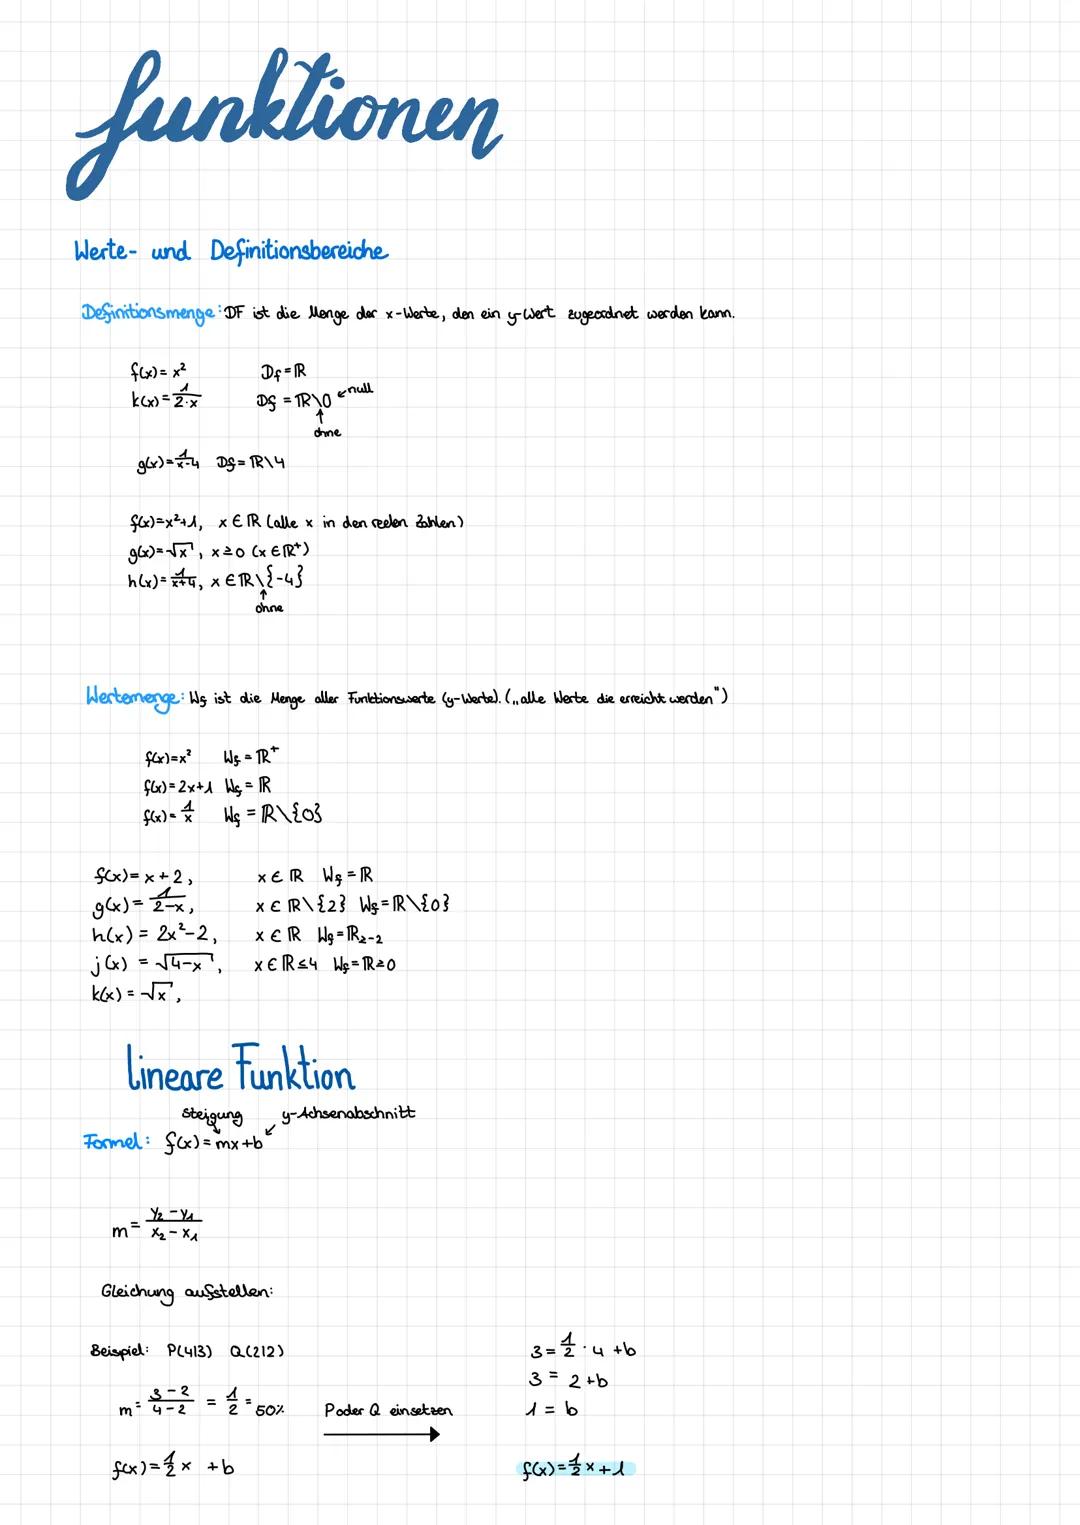 funktionen
Werte- und Definitionsbereiche
Definitionsmenge: DF ist die Menge der x-Werte, den ein y-Wert zugeordnet werden kann.
f(x) = x² Df = ℝ
k(x) = 1/2·x Df = ℝ\0 ← null
↑
ohne
g(x) = 1/x-4 Df = ℝ\4
f(x) = x²+1, x ∈ ℝ (alle x in den reelen Zahlen)
g(x) = √x, x ≥ 0 (x ∈ ℝ⁺)
h(x) = 1/x+4, x ∈ ℝ\{-4}
↑
ohne
Wertemenge: Wf ist die Menge aller Funktionswerte (y-Werte). („alle Werte die erreicht werden")
f(x) = x² Wf = ℝ⁺
f(x) = 2x+1 Wf = ℝ
f(x) = 1/x Wf = ℝ\{0}
f(x) = x + 2, x ∈ ℝ Wf = ℝ
g(x) = 1/2-x, x ∈ ℝ\{2} Wf = ℝ\{0}
h(x) = 2x²-2, x ∈ ℝ Wf = ℝ≥-2
j(x) = √4-x, x ∈ ℝ ≤ 4 Wf = ℝ ≥ 0
k(x) = √x,
Lineare Funktion
Steigung y-Achsenabschnitt
Formel: f(x) = mx+b
m = y₂ - y₁ / x₂ - x₁
Gleichung aufstellen:
Beispiel: P(4|3) Q(2|2)
m = 3-2/4-2 = 1/2 = 50%
f(x) = 1/2 x + b
P oder Q einsetzen
→
3 = 1/2 · 4 + b
3 = 2 + b
1 = b
f(x) = 1/2 x + 1